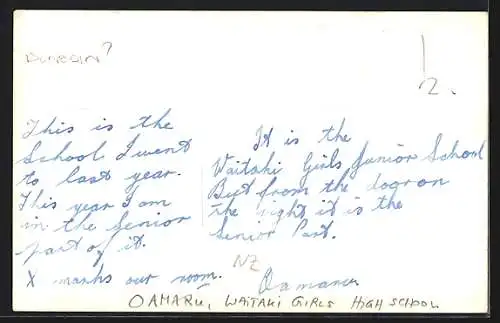 Dunedin?
1
2.
This is the
School I went
to last year.
This year I am
in the Senior
part of it.
X marks our room.
It is the
Waitaki Girls Junior School
But from the door on
the right it is the
Senior Part.
NZ
Oamaru
OAMARU, WAITAKI GIRLS HIGH SCHOOL